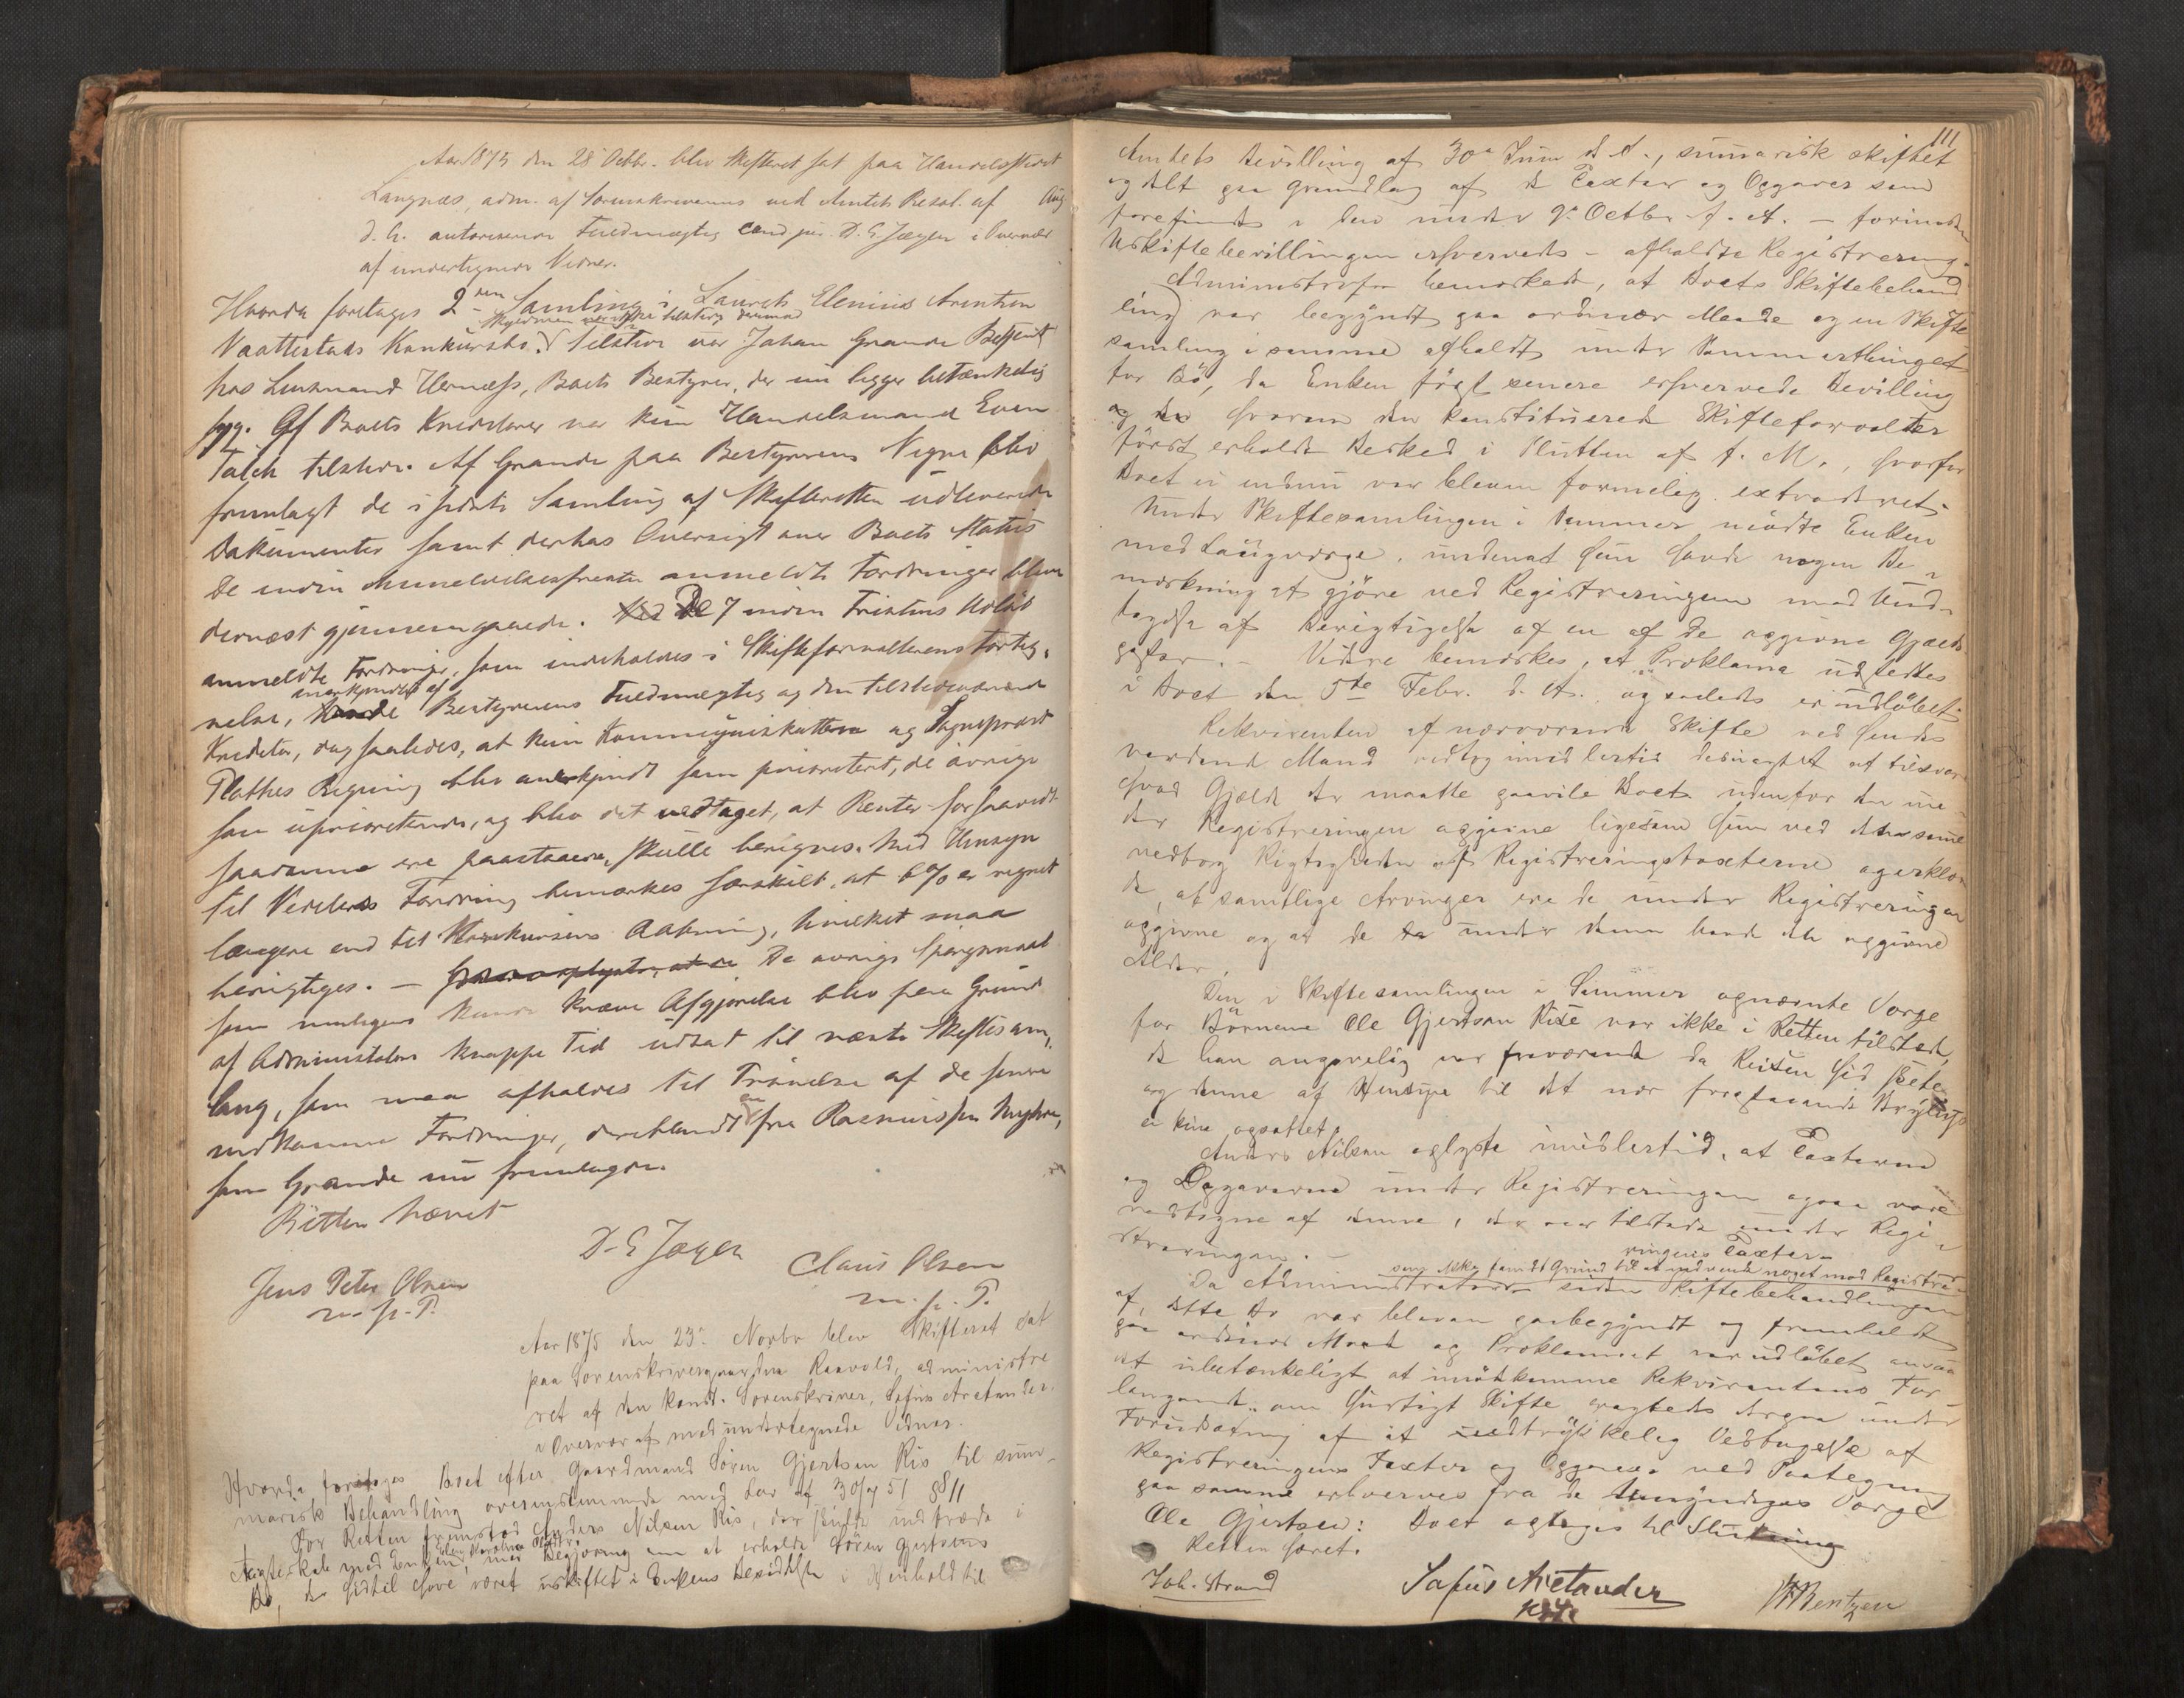 Aar 1875 den 28 Octbr. blev Skifteret sat paa Handelsstedet
Langnæs, adm. af Sorenskriverens ved Amtets Resol. af Aug
d. A. autoriserede Fuldmægtig cand. jur. D. E. Jæger i Overvær
af undertegnede Vidner.
Hvorda foretages 2den Samling i Laurits Elenius Arentsen
Skyldneren var ikke tilstede derimod
Vaattestads Konkursbo. Tilstede var Johan Grande Betjent
hos Lensmand Hernæss, Boets Bestyrer, der nu ligger betænkelig
syg. Af Boets Kreditorer var kun Handelsmand Even
Falch tilstede. Af Grande paa Bestyrerens Vegne blev
fremlagt de i sidste Samling af Skifteretten udleverede
Dokumenter samt derhos Oversigt over Boets Status
De inden Anmeldelsesfristen anmeldte Fordringer blev
dernæst gjennemgaaede. De 7 inden Fristens Udløb
anmeldte Fordringer, som indeholdes i Skifteforvalterens Forteg-
anerkjendtes af
nelse, Bestyrerens Fuldmægtig og den tilstedeværende
Kreditor, dog saaledes, at kun Kommuneskatten og Sogneprest
Flothes Regning blev anerkjendt som prioriteret, de øvrige
som uprioriterede, og blev det vedtaget, at Renter forsaavidt
saadanne ere paastaaede, skulle beregnes. Med Hensyn
til Fordring bemærkes særskilt, at 6 % er regnet
længere end til Konkursens Aabning, hvilket maa
berigtiges. — De øvrige Spørgsmaal
som muligens kunde kræve Afgjørelse blev paa Grund
af Administrators knappe Tid udsat til næste Skiftesam-
ling, som maa afholdes til Prøvelse af de senere
indkomne Fordringer, deriblandt en fra Rasmussen Myhre,
som Grande nu fremlagde.
Retten hævet
D. E. Jæger
Jens Peter Olsen
m. p. P.
Claus Olsen
m. p. P.
Aar 1875 den 23de Novbr blev Skifteret sat
paa Sorenskrivergaarden Raavold, administre
ret af den konst. Sorenskriver, Sofus Arctander
i Overvær af medundertegnede Vidner.
Hvorda foretages Boet efter Gaardmand Søren Gjertsen Ris til sum-
marisk Behandling overensstemmende med Lov af 30/7 51 § 11
For Retten fremstod Anders Nilsen Ris, der skulde indtræde i
Ægteskab med Enken, med Begjæring om at erholde Søren Gjertsens
Bo, der hidtil have været uskiftet i Enkens Besiddelse i Henhold til
111
Amtets Bevilling af 30te Juni d. A., summarisk skiftet
og Alt paa Grundlag af de Taxter og Opgaver som
forefindes i den under 9de Octbr f. A. — forinden
Uskiftebevillingen erhvervedes — afholdte Registrering.
Administrator bemærkede, at Boets Skiftebehand
ling var begyndt paa ordinær Maade og en Skifte
samling i samme afholdt under Sommerthinget
for Bø, da Enken først senere erhvervede Bevilling
og hvorom den konstituerede Skifteforvalter
først erholdt Besked i Slutten af f. M., hvorfor
Boet ei endnu var bleven formelig extraderet.
Under Skiftesamlingen i Sommer mødte Enken
med Laugværge, uden at hun havde nogen Be-
mærkning at gjøre ved Registreringen med Und-
tagelse af Berigtigelse af en af de opgivne Gjælds
poster. — Videre bemærkes, at Proklama udstedtes
i Boet den 5te Febr. d. A. og saaledes er udløbet.
Rekvirenten af nærværende Skifte ved hendes
vordende Mand vedtog imidlertid desuagtet at tilsvare
hvad Gjæld der maatte paahvile Boet udenfor den un-
der Registreringen opgivne ligesom hun ved den samme
vedtog Rigtigheden af Registreringstaxterne og erklære
de, at samtlige Arvinger ere de under Registreringen
opgivne og at de under denne havde den opgivne
Alder.
Den i Skiftesamlingen i Sommer opnævnte Værge
for Børnene Ole Gjertsen Rise var ikke i Retten tilstede,
da han angivelig var fraværende da Reisen hid skete
og denne af Hensyn til det nær forestaaende Bryllup
ei kan opsættes.
Anders Nilsen oplyste imidlertid, at Taxterne
og Opgaverne under Registreringen ogsaa vare
vedtagne af denne, der var tilstede under Regi-
streringen. —
som ikke fandt Grund til at indvende noget mod Registre-
ringens Taxter
Da Administrator siden Skiftebehandlingen
af dette Bo var bleven paabegyndt og fremholdt
paa ordinær Maade og Proklamaet var udløbet ansaa
det ubetænkeligt at imødekomme Rekvirentens For
langende om hurtigt Skifte, under
Forudsætning af at udtrykkelig Vedtagelse af
Registreringens Taxter og Opgaver ved Paategning
paa samme erhverves fra de Umyndiges Værge
Ole Gjertsen: Boet optages til Slutning
Retten hævet.
Joh. Strand
Sofus Arctander
kst.
Bentzen